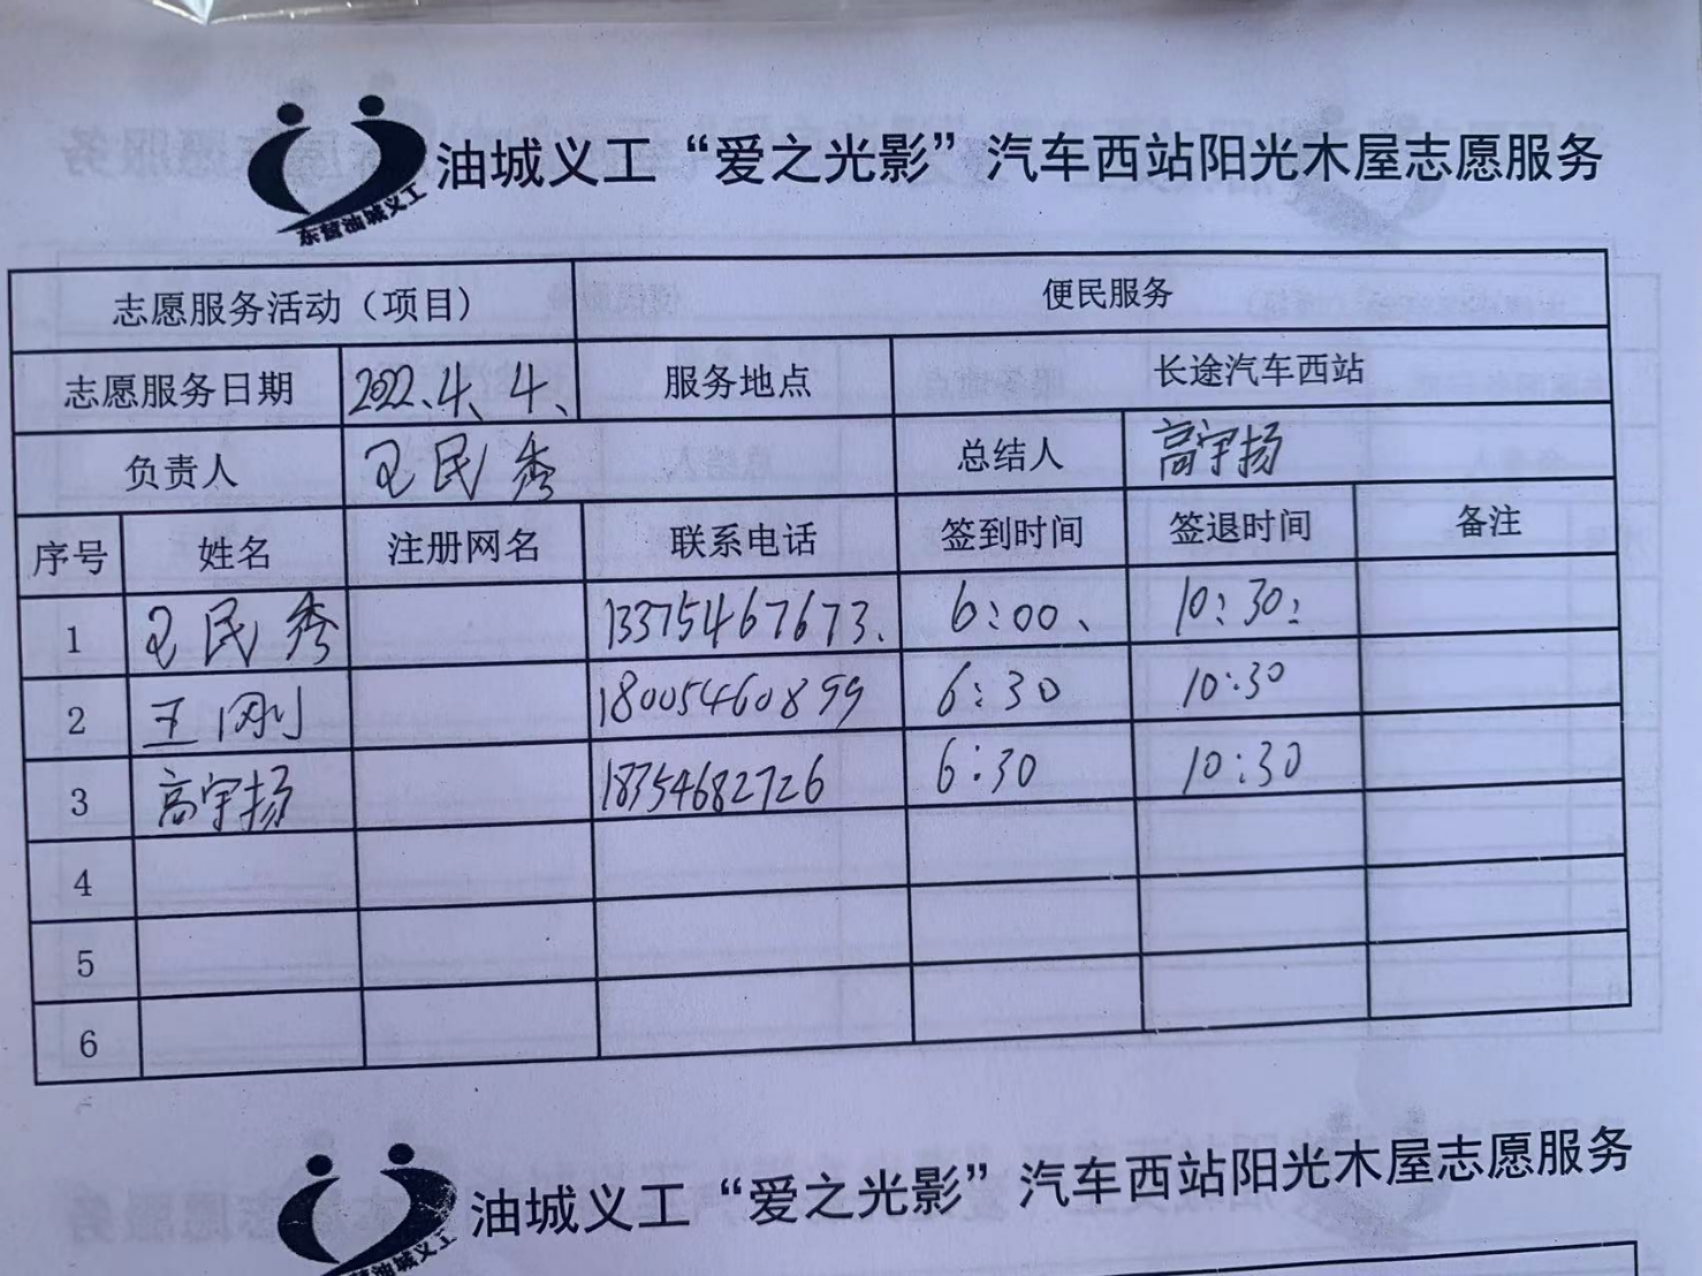 东营油城义工
油城义工“爱之光影”汽车西站阳光木屋志愿服务
志愿服务活动（项目） 便民服务
志愿服务日期 2022.4、4、 服务地点 长途汽车西站
负责人 王民秀 总结人 高宇扬
序号 姓名 注册网名 联系电话 签到时间 签退时间 备注
1 王民秀 13375467673、 6:00、 10:30:
2 王刚 18005460899 6:30 10:30
3 高宇扬 18754682726 6:30 10:30
4
5
6
油城义工“爱之光影”汽车西站阳光木屋志愿服务